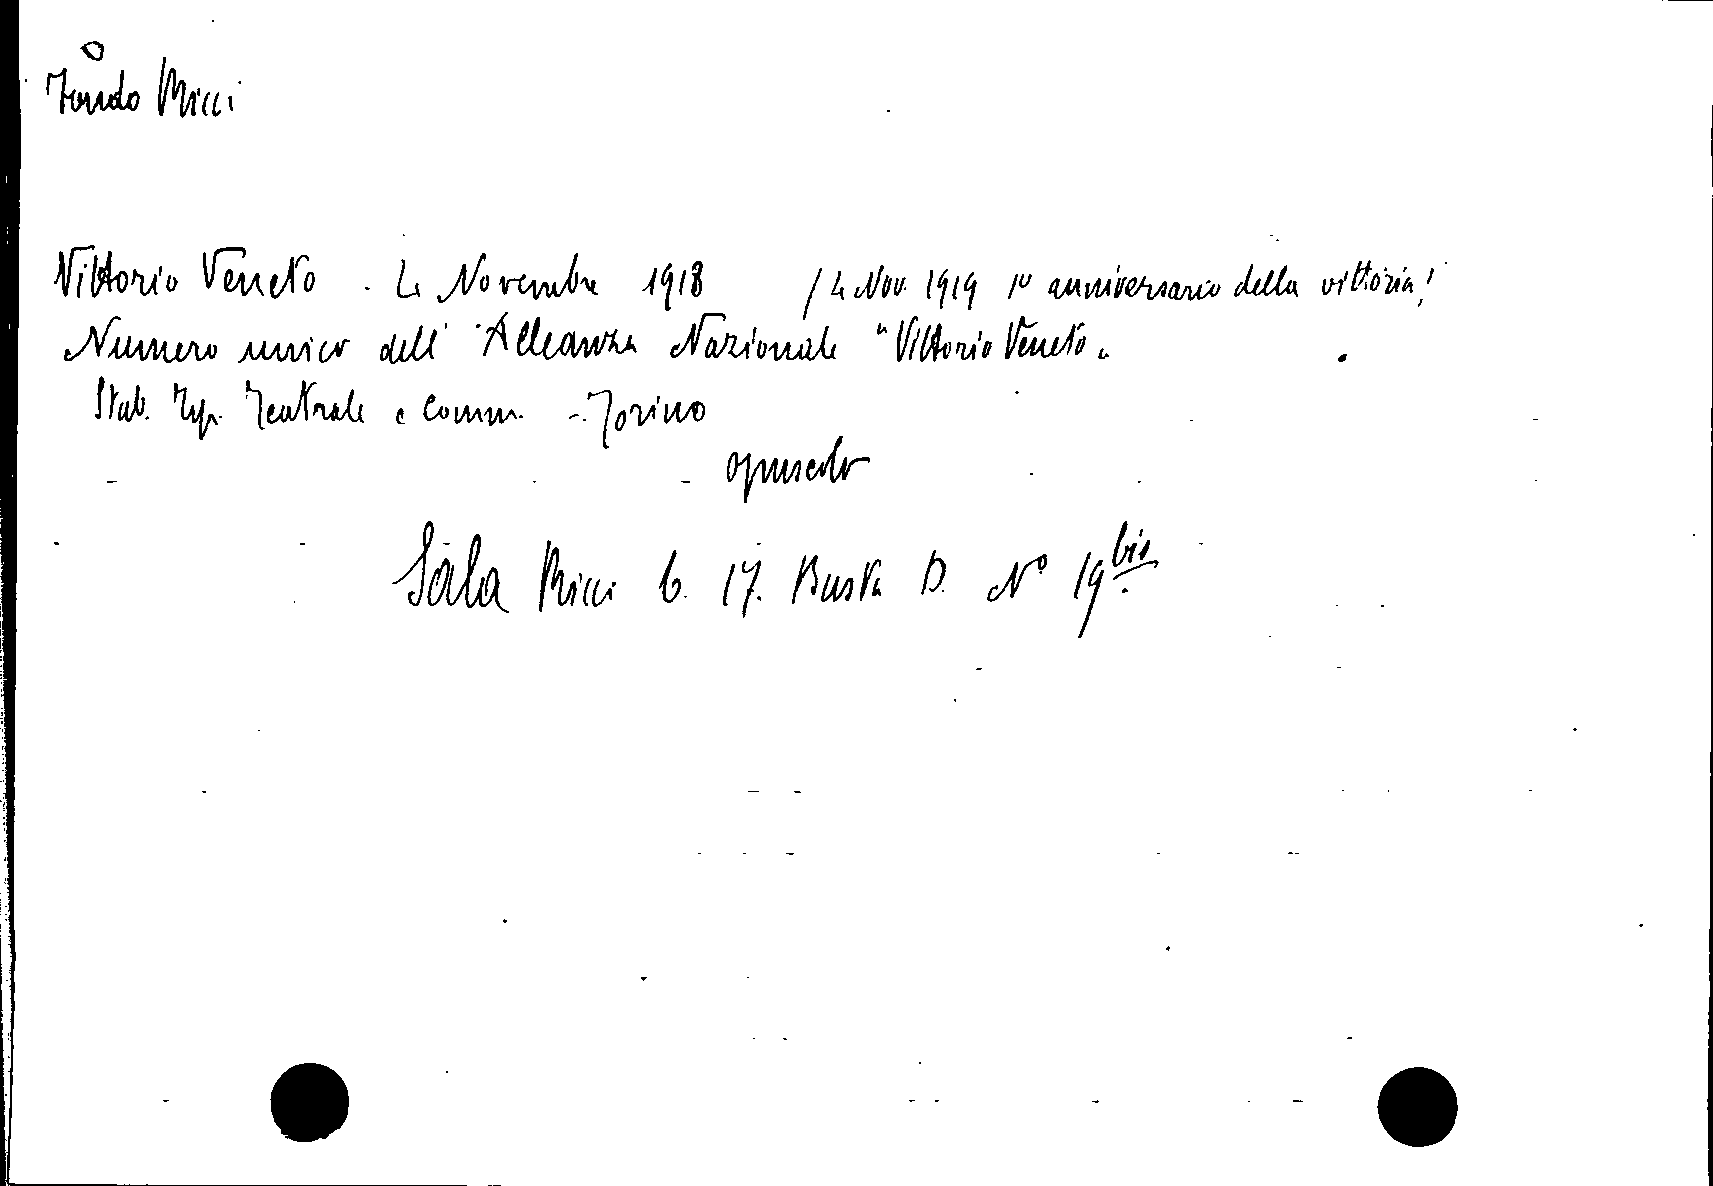 Fondo Ricci
Vittorio Veneto . 4 Novembre 1918 / 4 Nov. 1919 1º anniversario della vittoria!
Numero unico dell'Alleanza Nazionale "Vittorio Veneto"
Stab. Tip. Teatrale e Comm. - Torino
opuscolo
Sala Ricci b. 17. Busta D. Nº 19 bis